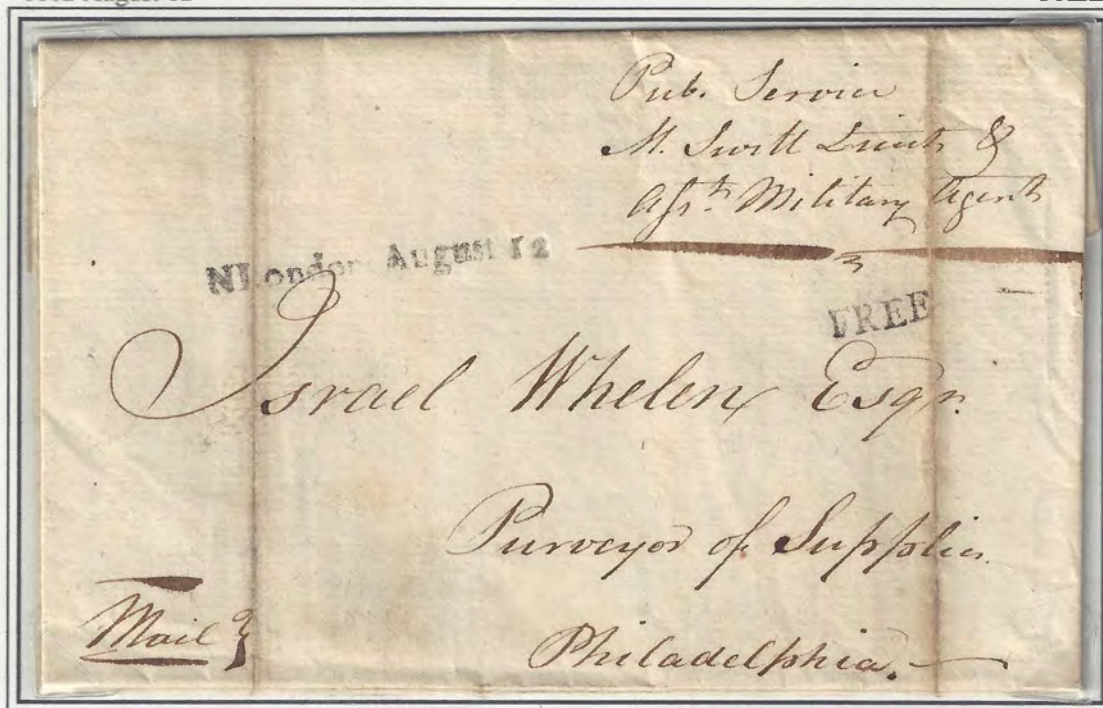 Pub. Service
M. Swift Lieut &
Asst. Military Agent
NLondon August 12
FREE
Israel Whelen Esqr.
Purveyor of Supplies
Mail
Philadelphia.